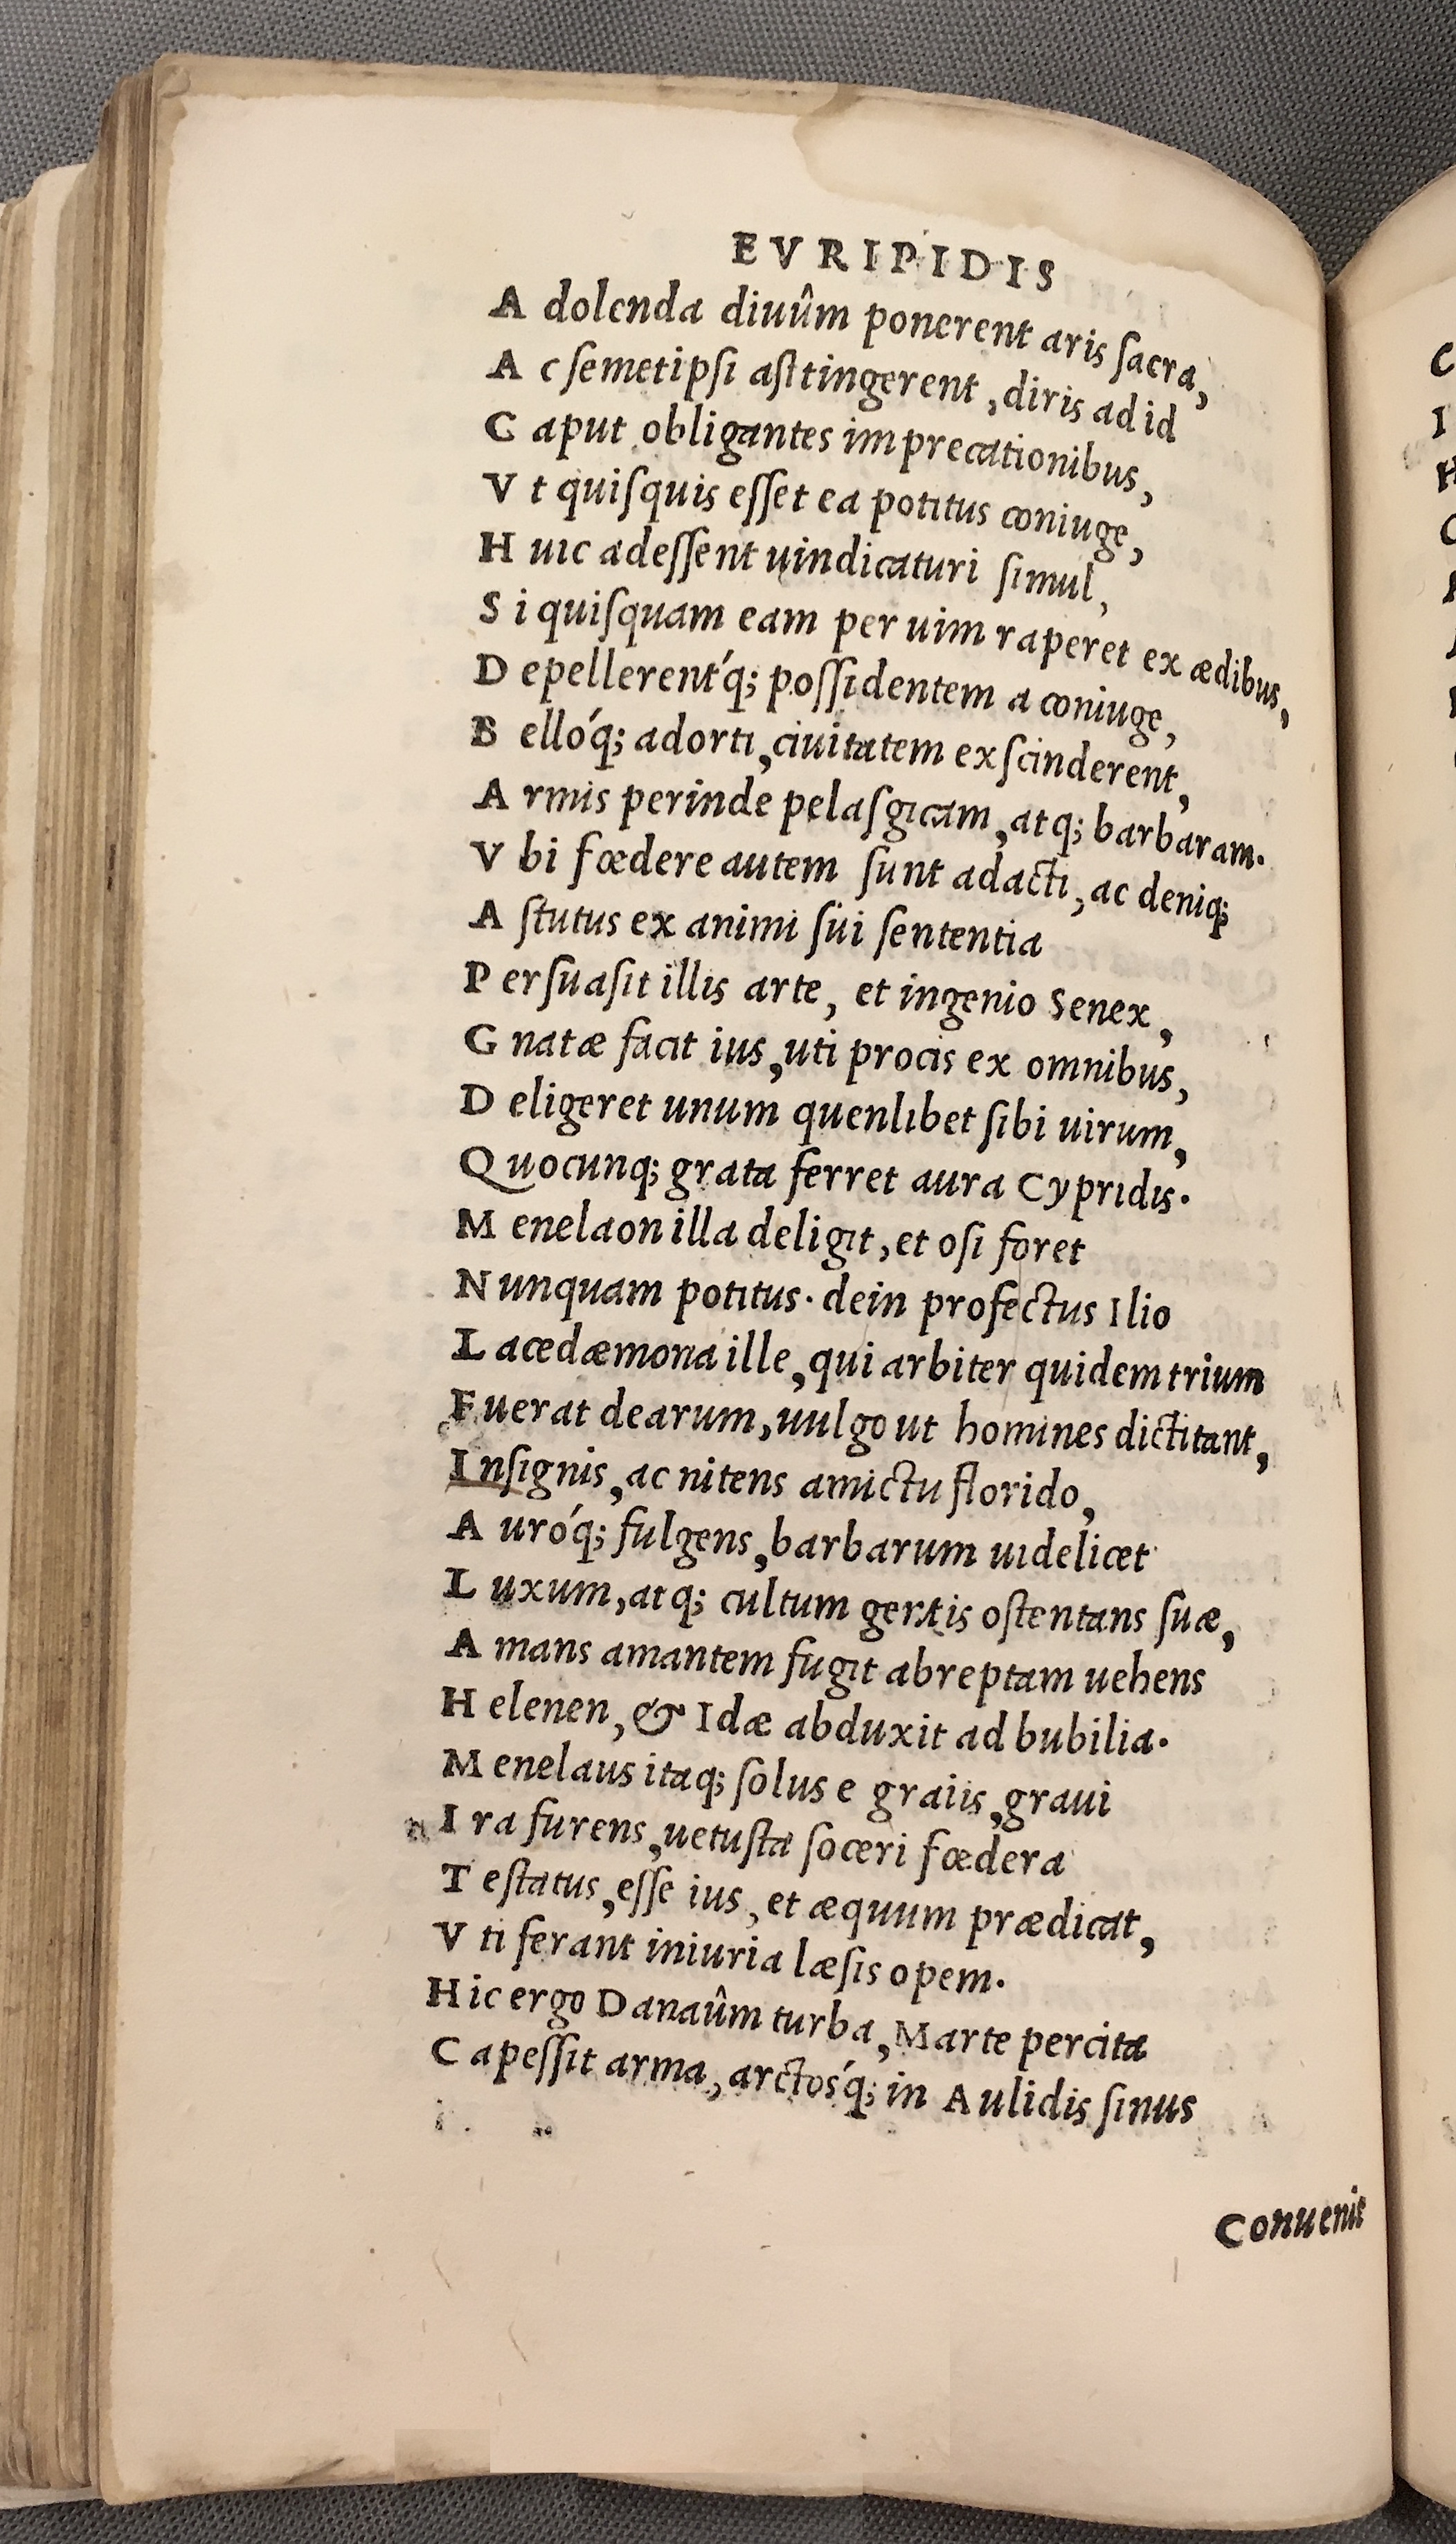 EVRIPIDIS
A dolenda diuûm ponerent aris ſacra,
A c ſemetipſi aſttingerent, diris ad id
C aput obligantes imprecationibus,
V t quiſquis eſſet ea potitus coniuge,
H uic adeſſent uindicaturi ſimul,
S i quiſquam eam per uim raperet ex ædibus,
D epellerent'q; poſſidentem a coniuge,
B elló'q; adorti, ciuitatem exſcinderent,
A rmis perinde pelaſgicam, atq; barbaram.
V bi fœdere autem ſunt adacti, ac deniq;
A ſtutus ex animi ſui ſententia
P erſuaſit illis arte, et ingenio Senex,
G natæ facit ius, uti procis ex omnibus,
D eligeret unum quenlibet ſibi uirum,
Q uocunq; grata ferret aura Cypridis.
M enelaon illa deligit, et oſi foret
N unquam potitus. dein profectus Ilio
L acedæmona ille, qui arbiter quidem trium
F uerat dearum, uulgo ut homines dictitant,
I nſignis, ac nitens amictu florido,
A uró'q; fulgens, barbarum uidelicet
L uxum, atq; cultum gentis oſtentans ſuæ,
A mans amantem fugit abreptam uehens
H elenen, & Idæ abduxit ad bubilia.
M enelaus itaq; ſolus e graiis, graui
I ra furens, uetuſta ſoceri fœdera
T eſtatus, eſſe ius, et æquum prædicat,
V ti ferant iniuria læſis opem.
H ic ergo Danaûm turba, Marte percita
C apeſſit arma, arctos'q; in Aulidis ſinus
Conuenit